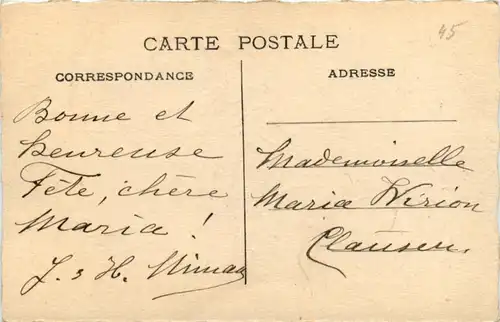 45
CARTE POSTALE
CORRESPONDANCE
ADRESSE
Bonne et
heureuse
Fête, chère
Maria !
J. & H.
Mademoiselle
Maria Wirion
Clausen.